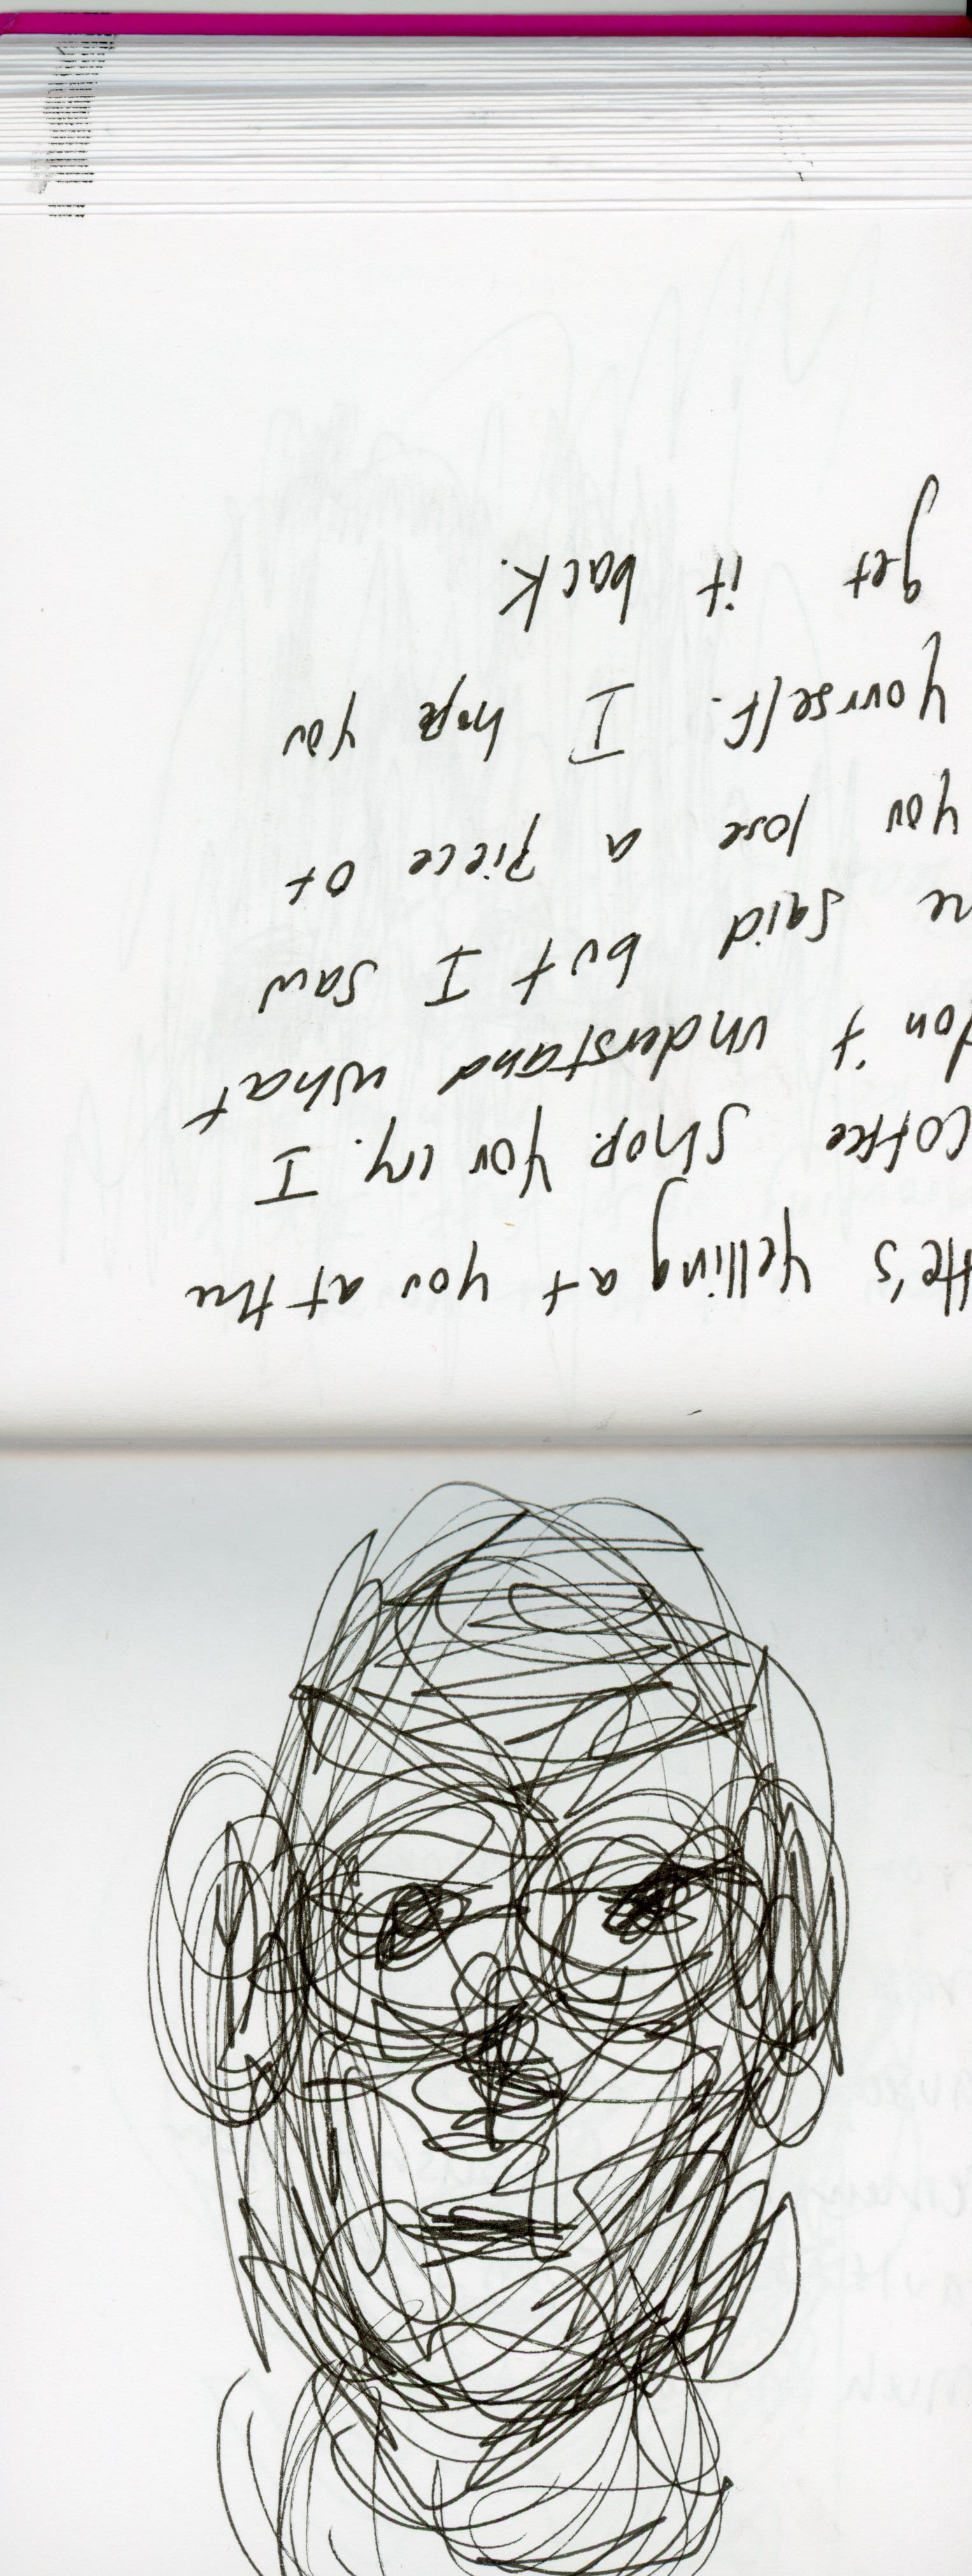 He's yelling at you at the
coffee shop. You cry. I
don't understand what
he said but I saw
you lose a piece of
yourself. I hope you
get it back.